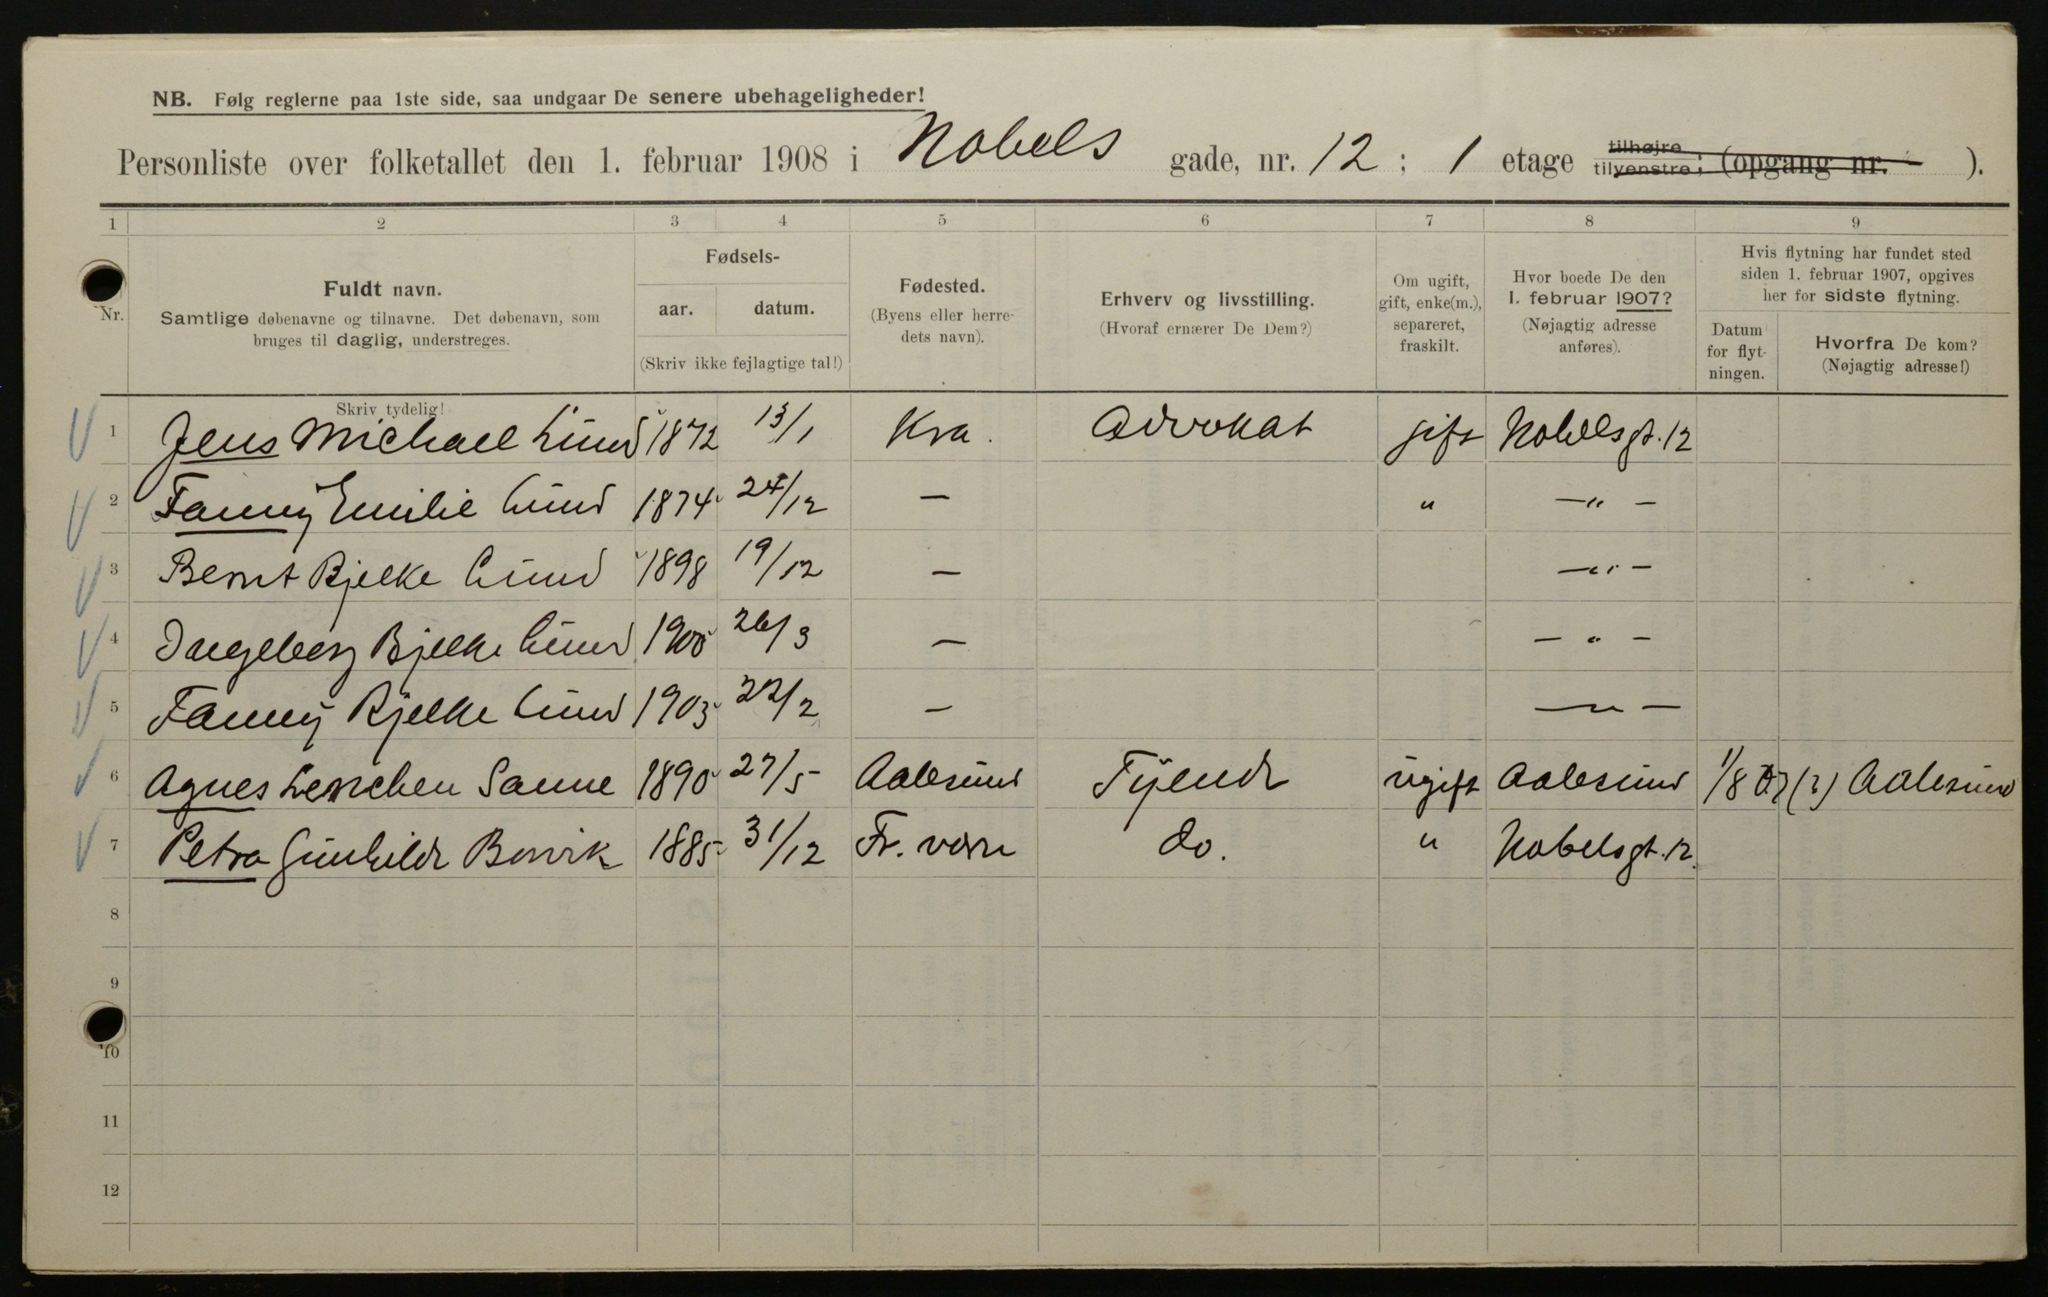 NB. Følg reglerne paa 1ste side, saa undgaar De senere ubehageligheder!
Personliste over folketallet den 1. februar 1908 i Nobels gade, nr. 12 ; 1 etage tilhøjre tilvenstre; (opgang nr. ).
1 2 3 4 5 6 7 8 9
Nr.
Fuldt navn.
Samtlige døbenavne og tilnavne. Det døbenavn, som
bruges til daglig, understreges.
Skriv tydelig!
Fødsels-
aar. datum.
(Skriv ikke fejlagtige tal!)
Fødested.
(Byens eller herre-
dets navn).
Erhverv og livsstilling.
(Hvoraf ernærer De Dem?)
Om ugift,
gift, enke(m.),
separeret,
fraskilt.
Hvor boede De den
1. februar 1907?
(Nøjagtig adresse
anføres).
Hvis flytning har fundet sted
siden 1. februar 1907, opgives
her for sidste flytning.
Datum
for flyt-
ningen.
Hvorfra De kom?
(Nøjagtig adresse!)
1 Jens Michael Lund 1872 13/1 Kra. Advokat gift Nobelsgt. 12
2 Fanny Emilie Lund 1874 24/12 — " —"—
3 Bernt Bjelke Lund 1898 19/12 — —"—
4 Ingeborg Bjelke Lund 1900 26/3 — —"—
5 Fanny Bjelke Lund 1903 22/2 — —"—
6 Agnes Lenchen Sanne 1890 27/5 Aalesund Tyende ugift Aalesund 1/8 07 (?) Aalesund
7 Petra Gunhilde 1885 31/12 Fr. værn do. " Nobelsgt. 12.
8
9
10
11
12